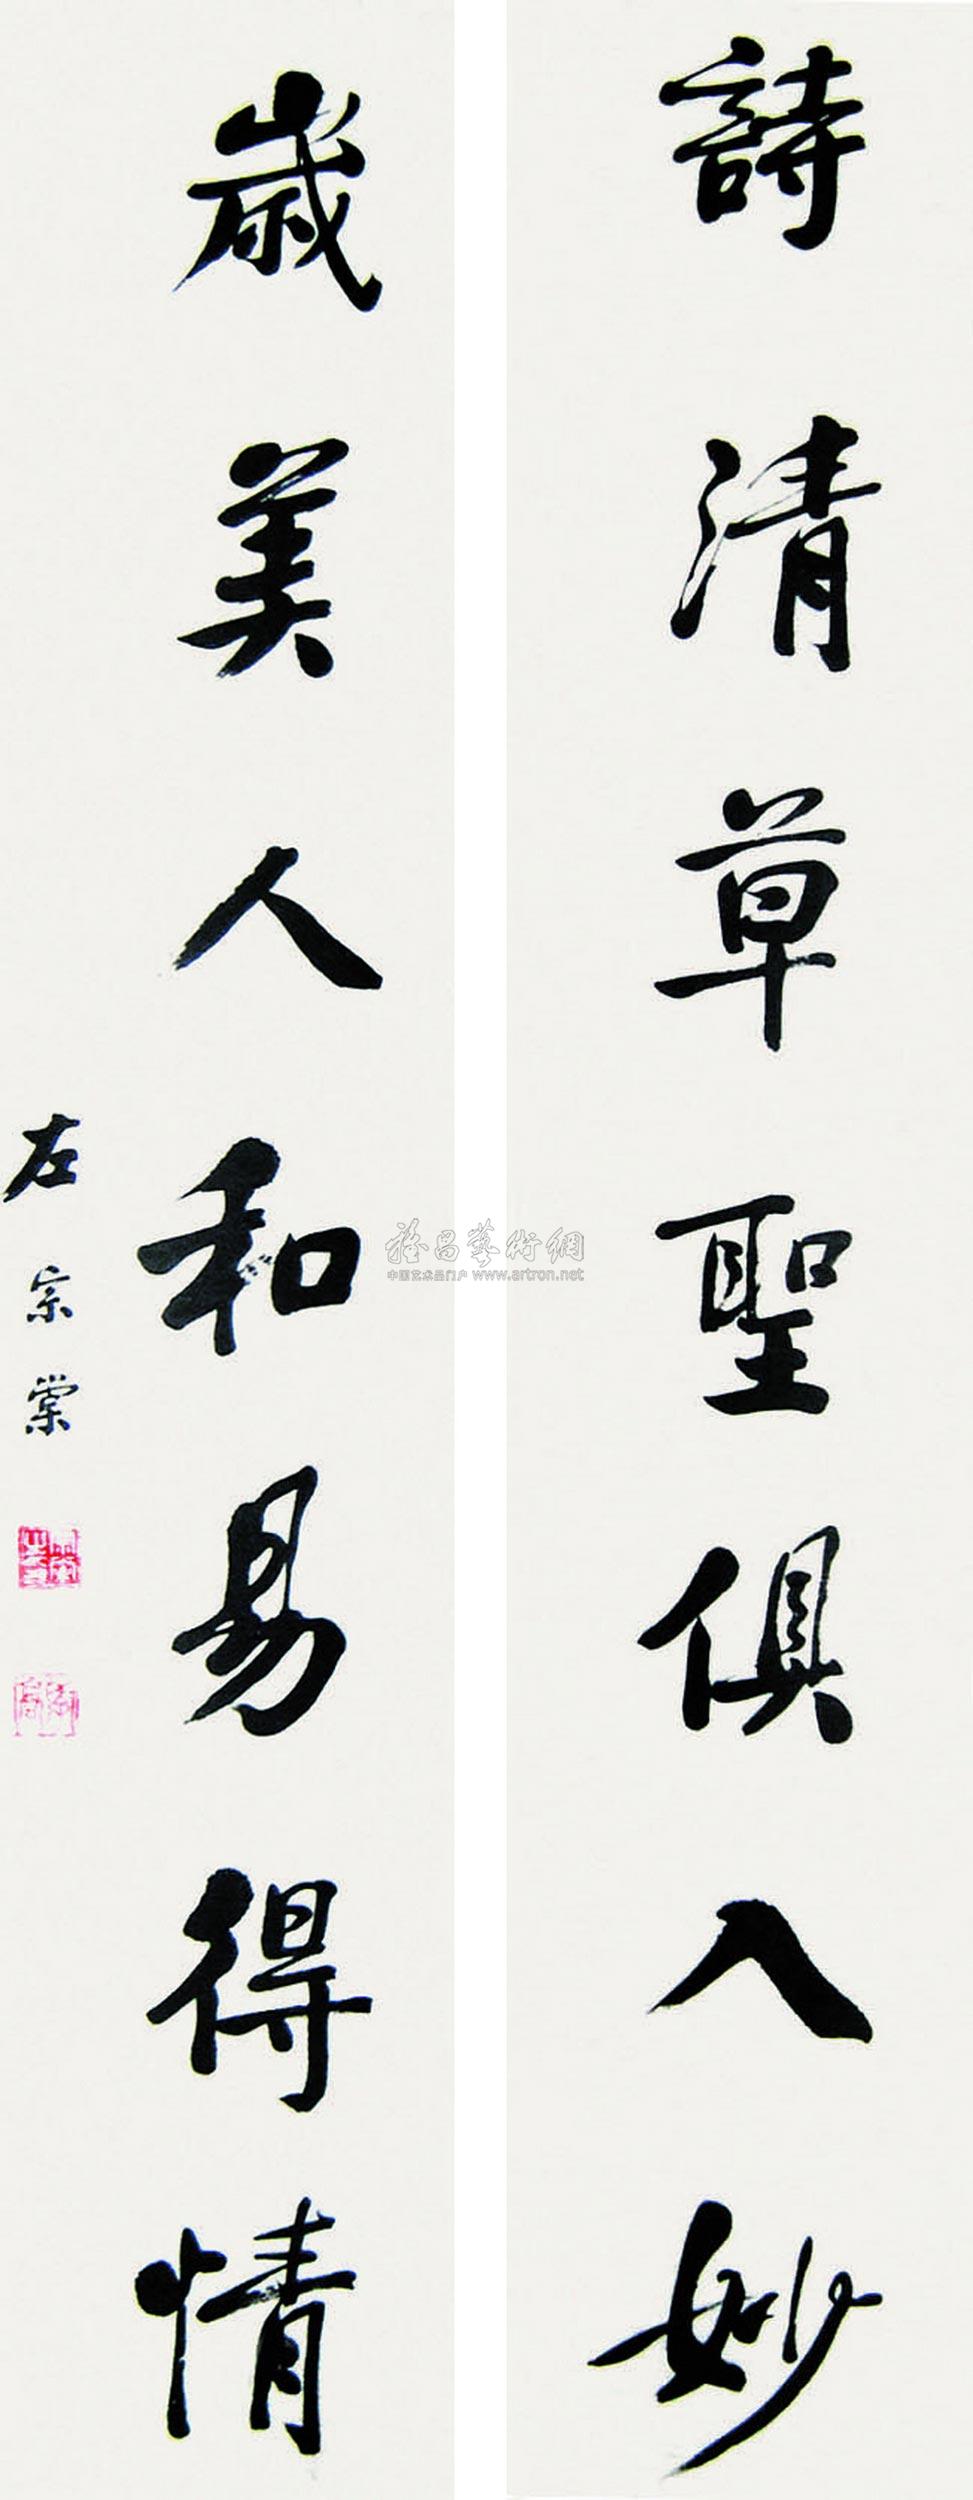 詩清草聖俱入妙
歲美人和易得情
左宗棠
雅昌藝術網
中国艺术品门户 www.artron.net